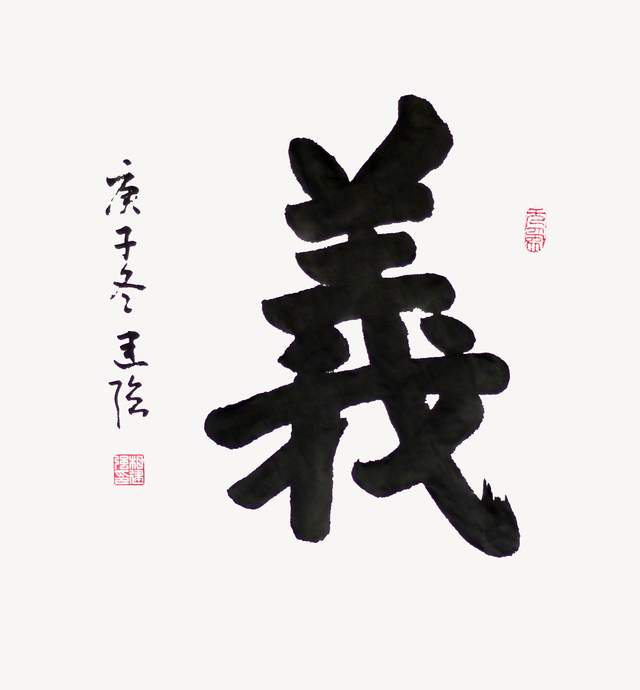 義
庚子冬建陰